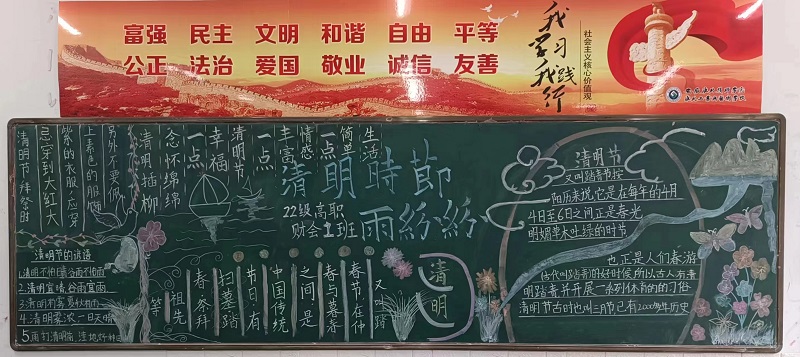 富强 民主 文明 和谐 自由 平等
公正 法治 爱国 敬业 诚信 友善
我学习
我践行
社会主义核心价值观
清明時節
雨紛紛
22级高职
财会1班
生活
简单
一点
情感
丰富
一点
清明节
幸福
一点
念怀绵绵
清明插柳
另外不要佩
上素色的服饰
紫的衣服，应穿
忌穿到大红大
清明节 拜祭时
清明节的谚语
3.清明有雾
4.清明雾浓一日天
5.雨打清明前
清明
又叫踏
春节，在仲
春与暮春
之间，是
中国传统
节日有
扫墓踏
春祭拜
祖先
等
清明节
又叫踏春节，按
阳历来说，它是在每年的4月
4日至6日之间正是春光
明媚草木吐绿的时节
也正是人们春游
(古代叫踏青)的好时候,所以古人有清
明踏青并开展一系列体育的的习俗
清明节古时也叫三月节已有2000多年历史